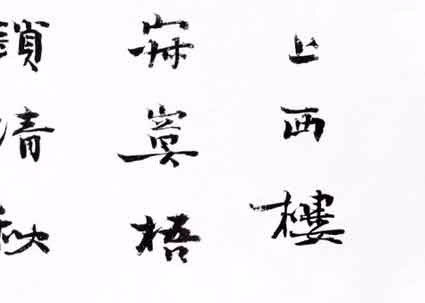 上西樓
寂寞梧
鎖清秋